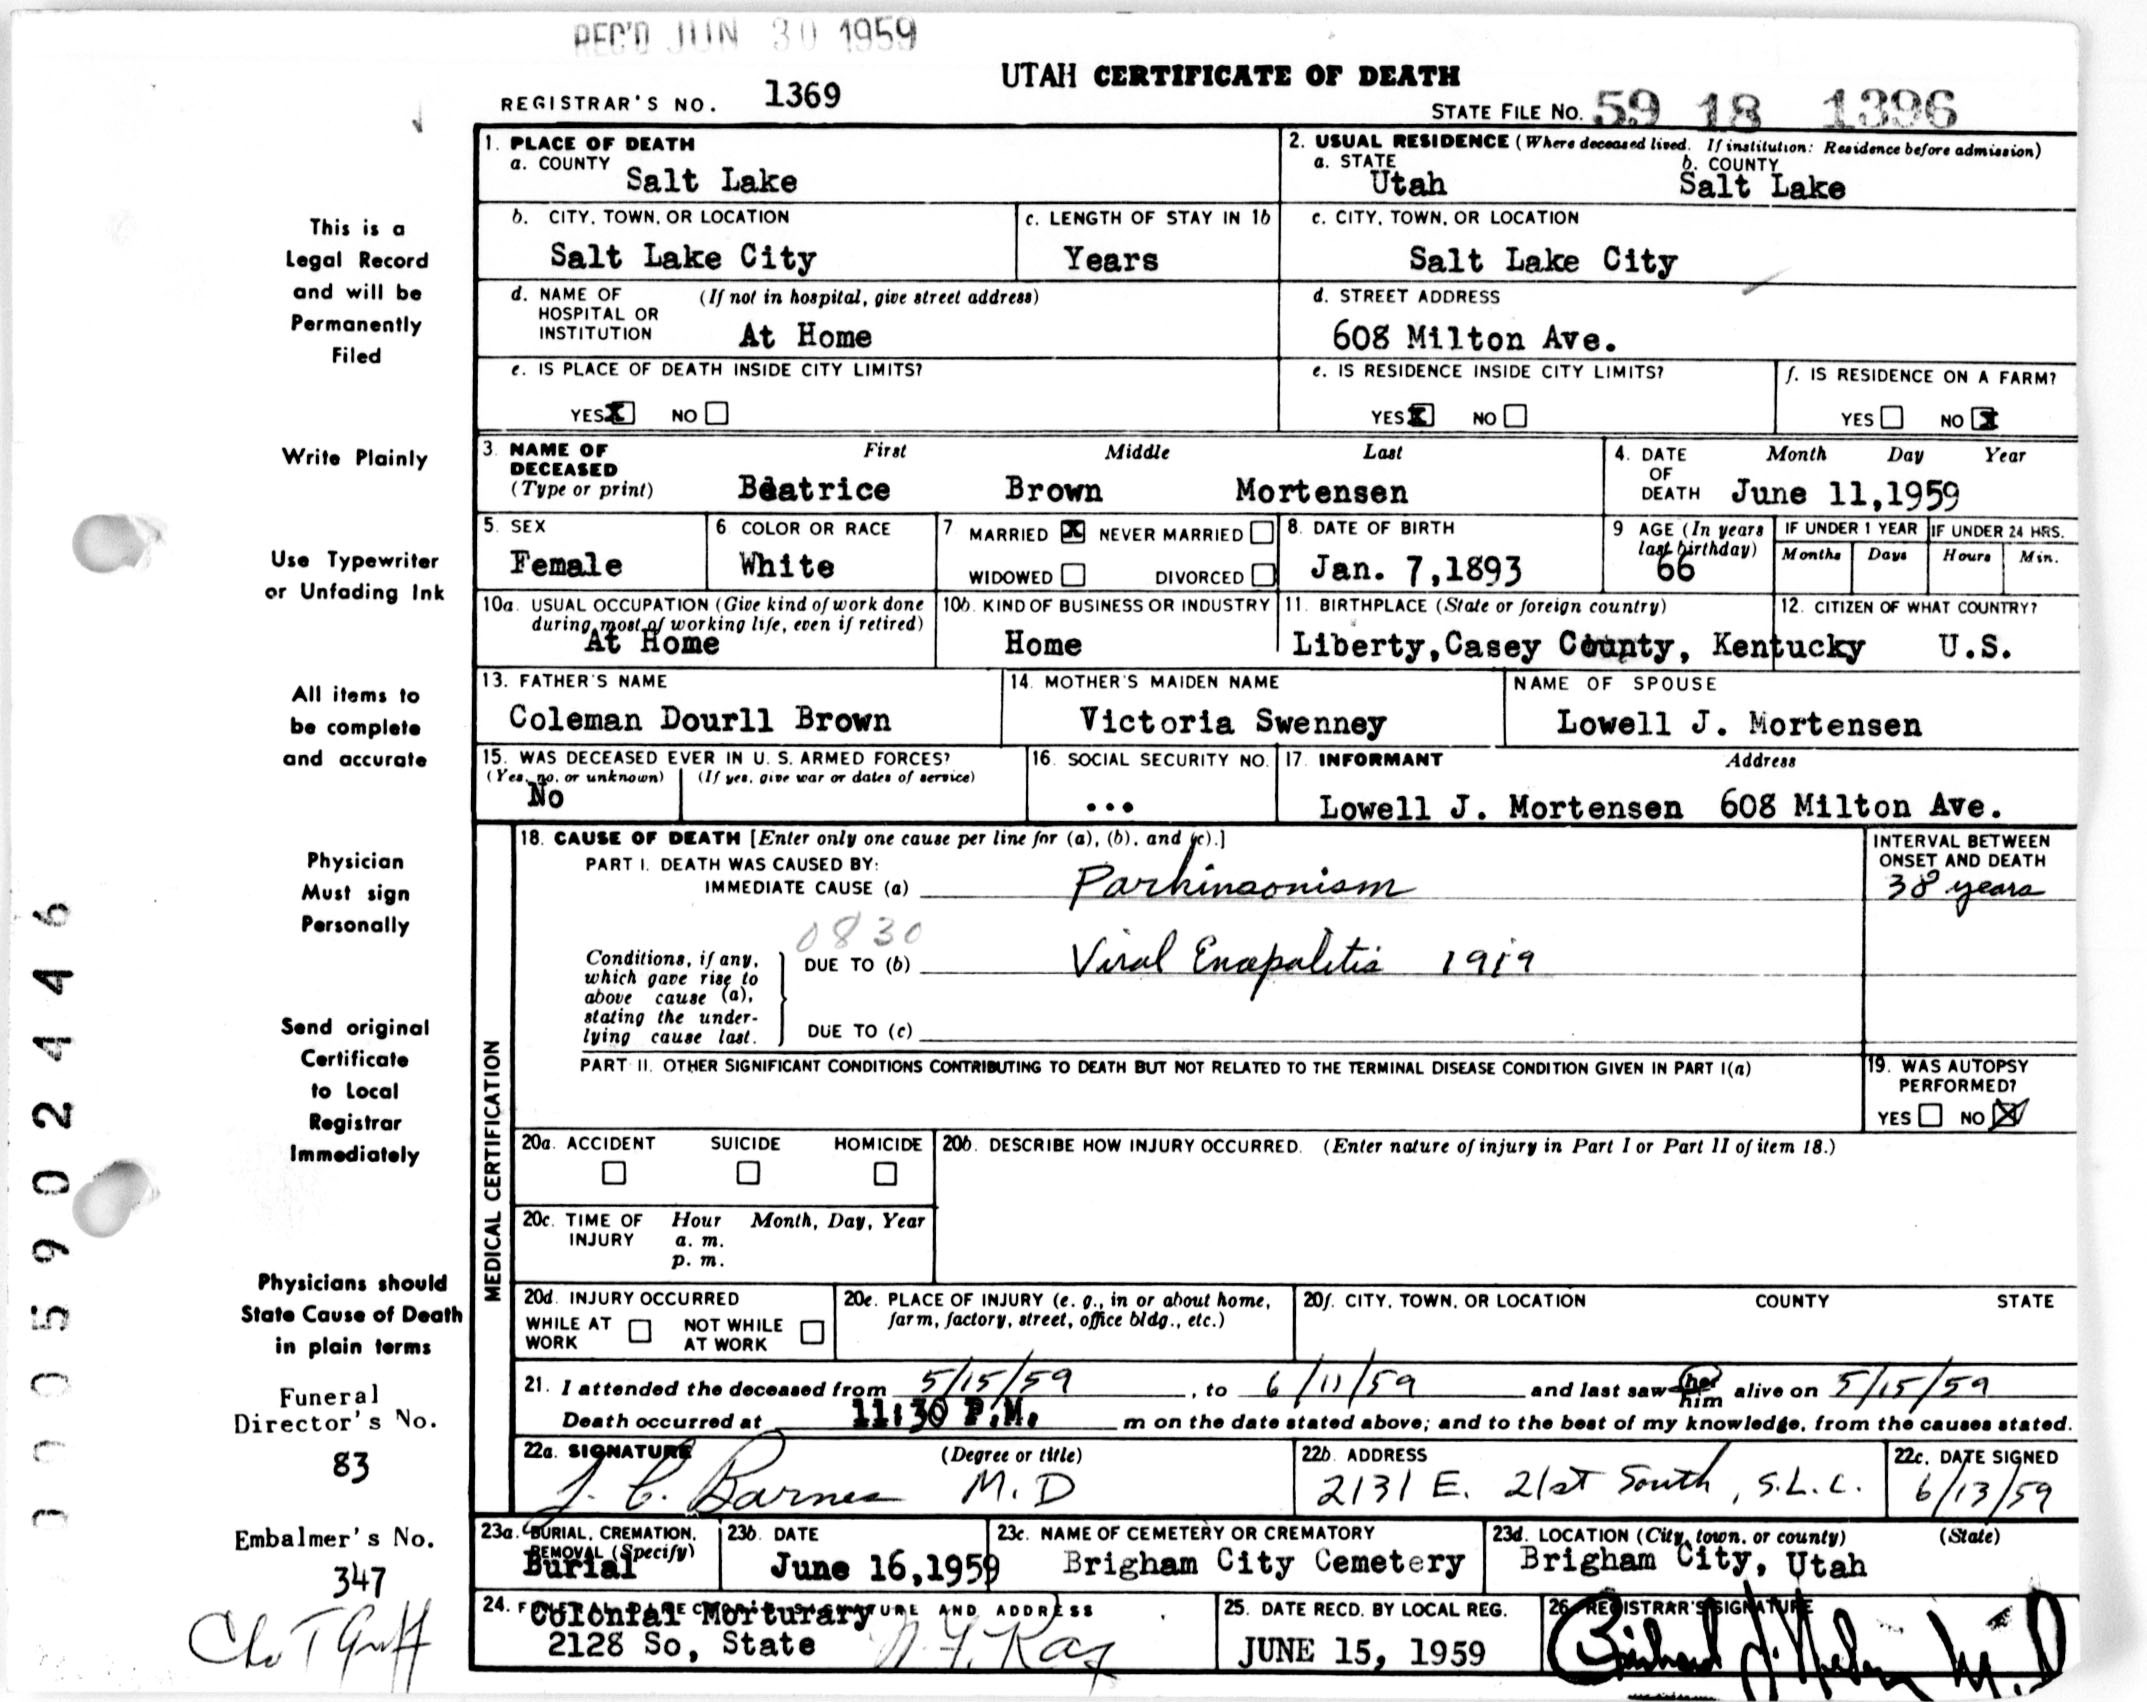 REC'D JUN 30 1959
UTAH CERTIFICATE OF DEATH
REGISTRAR'S NO. 1369
STATE FILE NO. 59 18 1396
This is a
Legal Record
and will be
Permanently
Filed
Write Plainly
Use Typewriter
or Unfading Ink
All items to
be complete
and accurate
Physician
Must sign
Personally
Send original
Certificate
to Local
Registrar
Immediately
Physicians should
State Cause of Death
in plain terms
Funeral
Director's No.
83
Embalmer's No.
347
0005902446
1. PLACE OF DEATH
a. COUNTY
Salt Lake
2. USUAL RESIDENCE (Where deceased lived. If institution: Residence before admission)
a. STATE b. COUNTY
Utah Salt Lake
b. CITY, TOWN, OR LOCATION
Salt Lake City
c. LENGTH OF STAY IN 1b
Years
c. CITY, TOWN, OR LOCATION
Salt Lake City
d. NAME OF (If not in hospital, give street address)
HOSPITAL OR
INSTITUTION At Home
d. STREET ADDRESS
608 Milton Ave.
e. IS PLACE OF DEATH INSIDE CITY LIMITS?
YES X NO
e. IS RESIDENCE INSIDE CITY LIMITS?
YES X NO
f. IS RESIDENCE ON A FARM?
YES NO X
3. NAME OF First Middle Last
DECEASED
(Type or print) Beatrice Brown Mortensen
4. DATE Month Day Year
OF
DEATH June 11,1959
5. SEX
Female
6. COLOR OR RACE
White
7 MARRIED X NEVER MARRIED
WIDOWED DIVORCED
8. DATE OF BIRTH
Jan. 7,1893
9 AGE (In years
last birthday)
66
IF UNDER 1 YEAR IF UNDER 24 HRS.
Months Days Hours Min.
10a. USUAL OCCUPATION (Give kind of work done
during most of working life, even if retired)
At Home
10b. KIND OF BUSINESS OR INDUSTRY
Home
11. BIRTHPLACE (State or foreign country)
Liberty,Casey County, Kentucky
12. CITIZEN OF WHAT COUNTRY?
U.S.
13. FATHER'S NAME
Coleman Dourll Brown
14. MOTHER'S MAIDEN NAME
Victoria Swenney
NAME OF SPOUSE
Lowell J. Mortensen
15. WAS DECEASED EVER IN U. S. ARMED FORCES?
(Yes, no, or unknown) (If yes, give war or dates of service)
No
16. SOCIAL SECURITY NO.
...
17. INFORMANT Address
Lowell J. Mortensen 608 Milton Ave.
MEDICAL CERTIFICATION
18. CAUSE OF DEATH [Enter only one cause per line for (a), (b), and (c).]
PART I. DEATH WAS CAUSED BY:
IMMEDIATE CAUSE (a) Parkinsonism
INTERVAL BETWEEN
ONSET AND DEATH
38 years
0830
Conditions, if any,
which gave rise to
above cause (a),
stating the under-
lying cause last.
DUE TO (b) Viral Encapalitis 1919
DUE TO (c)
PART II. OTHER SIGNIFICANT CONDITIONS CONTRIBUTING TO DEATH BUT NOT RELATED TO THE TERMINAL DISEASE CONDITION GIVEN IN PART I(a)
19. WAS AUTOPSY
PERFORMED?
YES NO X
20a. ACCIDENT SUICIDE HOMICIDE
20b. DESCRIBE HOW INJURY OCCURRED. (Enter nature of injury in Part I or Part II of item 18.)
20c. TIME OF Hour Month, Day, Year
INJURY a. m.
p. m.
20d. INJURY OCCURRED
WHILE AT NOT WHILE
WORK AT WORK
20e. PLACE OF INJURY (e. g., in or about home,
farm, factory, street, office bldg., etc.)
20f. CITY, TOWN, OR LOCATION COUNTY STATE
21. I attended the deceased from 5/15/59, to 6/11/59 and last saw her him alive on 5/15/59
Death occurred at 11:30 P.M. m on the date stated above; and to the best of my knowledge, from the causes stated.
22a. SIGNATURE (Degree or title)
Barnes M.D
22b. ADDRESS
2131 E. 21st South, S.L.C.
22c. DATE SIGNED
6/13/59
23a. BURIAL, CREMATION,
REMOVAL (Specify)
Burial
23b. DATE
June 16,1959
23c. NAME OF CEMETERY OR CREMATORY
Brigham City Cemetery
23d. LOCATION (City, town, or county) (State)
Brigham City, Utah
24. FUNERAL DIRECTOR'S SIGNATURE AND ADDRESS
Colonial Morturary
2128 So, State
25. DATE RECD. BY LOCAL REG.
JUNE 15, 1959
26. REGISTRAR'S SIGNATURE
M.D